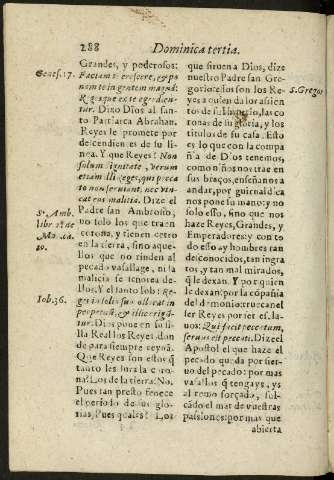 288
Dominica tertia.
Grandes, y poderosos:
Faciam te crescere, & po
nam te in gentem magnã:
Regesque ex te egredien-
tur. Dixo Dios al san-
to Patriarca Abrahan.
Reyes le promete por
descendientes de su li-
nea. Y que Reyes? Non
solum dignitate, verum
etiam illi reges, qui pecca
to non seruiunt, nec vin-
cat eos malitia. Dize el
Padre san Ambrosio,
no solo los que traen
corona, y tienen cetro
en la tierra, sino aque-
llos que no rinden al
pecado vasallage, ni la
malicia se señorea de-
llos. Y el santo Iob: Re-
ges in solio suo collocat in
perpetuũ, & illic erigũ-
tur. Dios pone en su si-
lla Real los Reyes, don
de para siempre reynã.
Que Reyes son estos q̃
tanto les dura la coro-
na? Los de la tierra? No,
Pues tan presto fenece
el periodo de sus glo-
rias, Pues quales? Los
Genes. 17.
S. Amb.
libr. 2. de
Iob. 36.
que siruen a Dios, dize
nuestro Padre san Gre-
gorio: essos son los Re-
yes a quien da los assien
tos de su Imperio, las co
ronas de su gloria, y los
titulos de su casa. Esto
es lo que con la compa-
ñia de Dios tenemos,
como niños nos trae en
sus braços, enseñanos a
andar, por guirnaldica
nos pone su mano; y no
solo esso, sino que nos
haze Reyes, Grandes, y
Emperadores: y con to
do esso ay hombres tan
desconocidos, tan ingra
tos, y tan mal mirados,
q̃ le dexan. Y por quien
le dexan: por la compañia
del demonio: truecan el
ser Reyes por ser escla-
uos: Qui facit peccatum,
seruus est peccati. Dize el
Apostol el que haze el
pecado queda por sier-
uo del pecado: por mas
vasallos q̃ tengays, y s
al remo forçado, sul-
cãdo el mar de vuestras
passiones: por mas que
abierta
S. Grego.